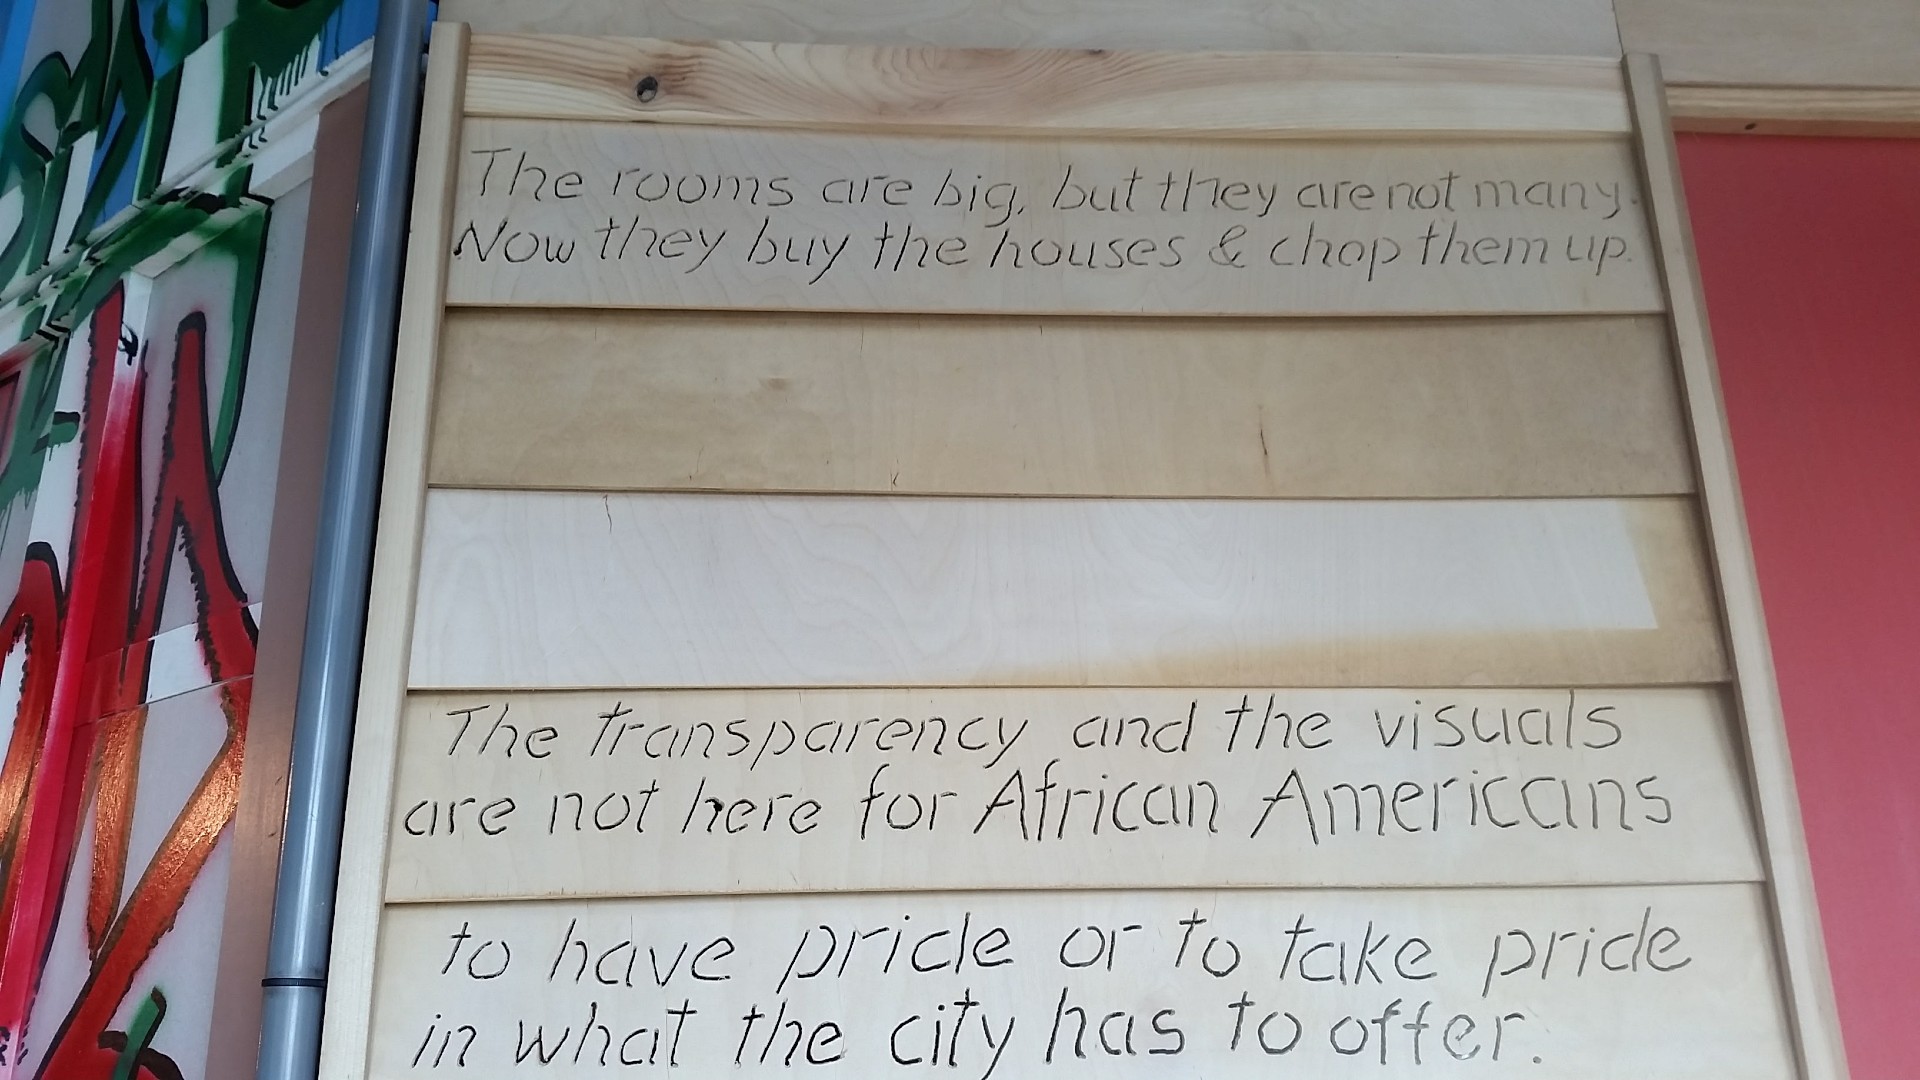 The rooms are big, but they are not many.
Now they buy the houses & chop them up.
The transparency and the visuals
are not here for African Americans
to have pride or to take pride
in what the city has to offer.